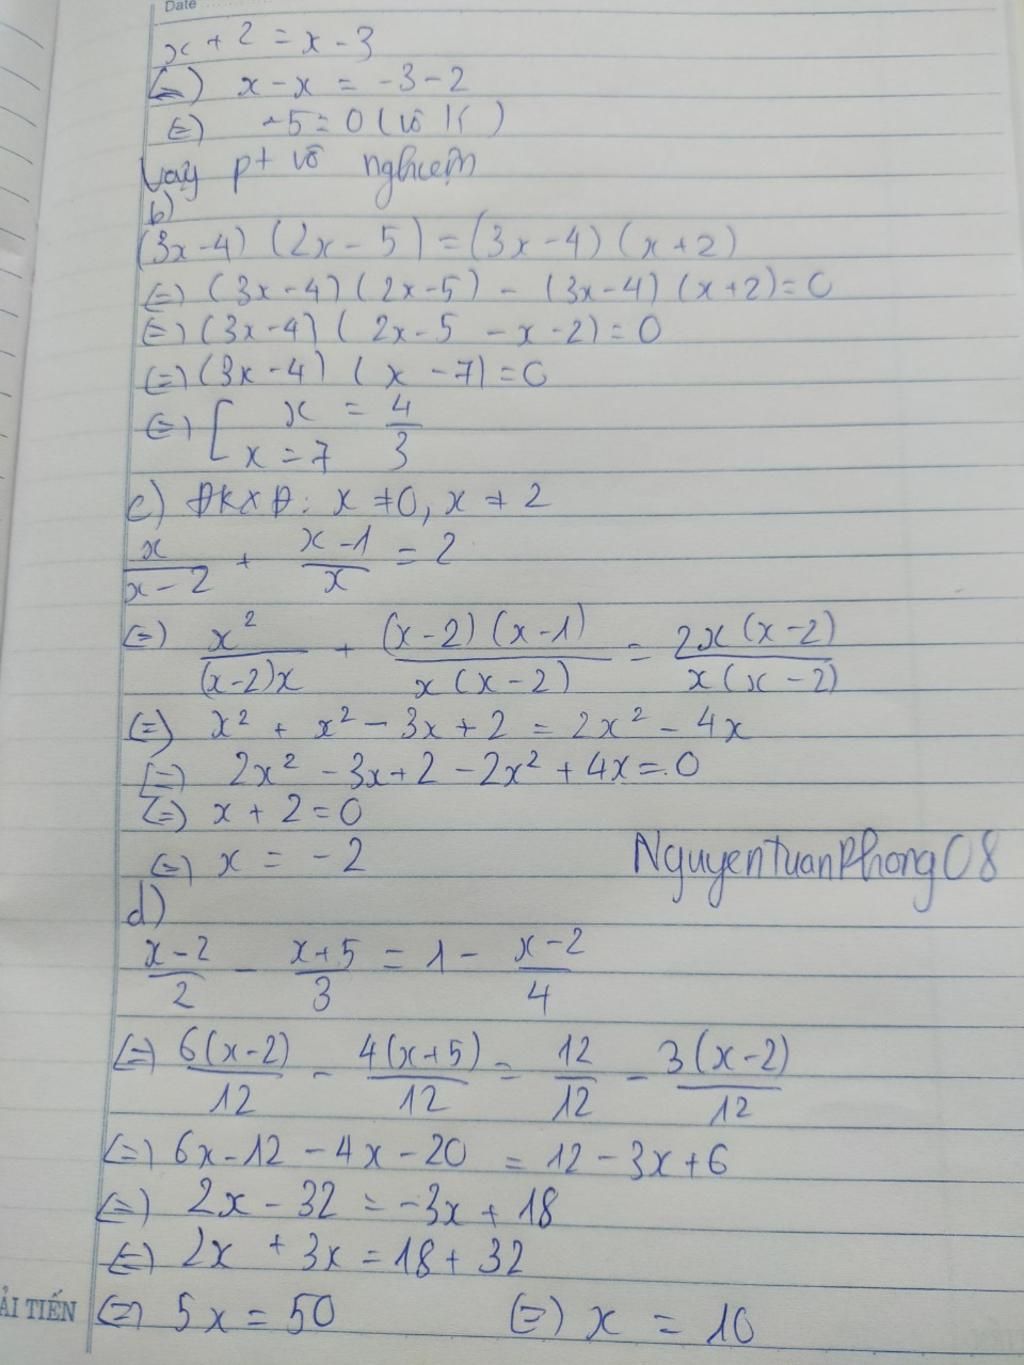 Date
x + 2 = x - 3
(=) x - x = -3 - 2
(=) -5 = 0 (vô lí)
Vậy pt vô nghiệm
b)
(3x-4) (2x - 5) = (3x-4) (x+2)
(=) (3x-4) (2x-5) - (3x-4) (x+2) = 0
(=) (3x-4) ( 2x-5 -x-2) = 0
(=) (3x-4) ( x -7) = 0
(=) [ x = 4/3
x = 7
c) ĐKXĐ: x ≠ 0, x ≠ 2
x/(x-2) + (x-1)/x = 2
(=) x²/((x-2)x) + ((x-2)(x-1))/(x(x-2)) = (2x(x-2))/(x(x-2))
(=) x² + x² - 3x + 2 = 2x² - 4x
(=) 2x² - 3x + 2 - 2x² + 4x = 0
(=) x + 2 = 0
(=) x = -2
NguyenTuanPhong08
d)
(x-2)/2 - (x+5)/3 = 1 - (x-2)/4
(=) 6(x-2)/12 - 4(x+5)/12 = 12/12 - 3(x-2)/12
(=) 6x-12 - 4x - 20 = 12 - 3x + 6
(=) 2x - 32 = -3x + 18
(=) 2x + 3x = 18 + 32
(=) 5x = 50 (=) x = 10
ẢI TIẾN